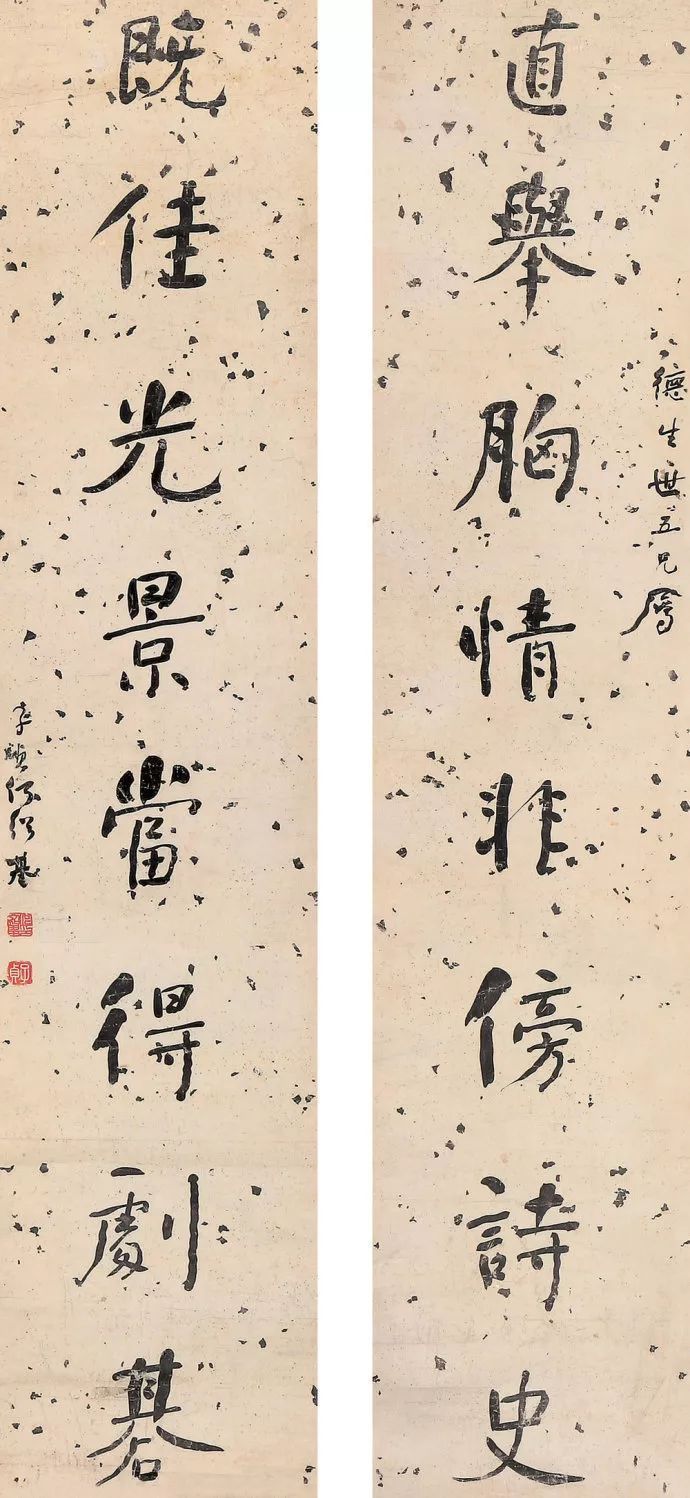 直舉胸情非傍詩史
德生世五兄屬
既佳光景當得劇棊
子貞何紹基